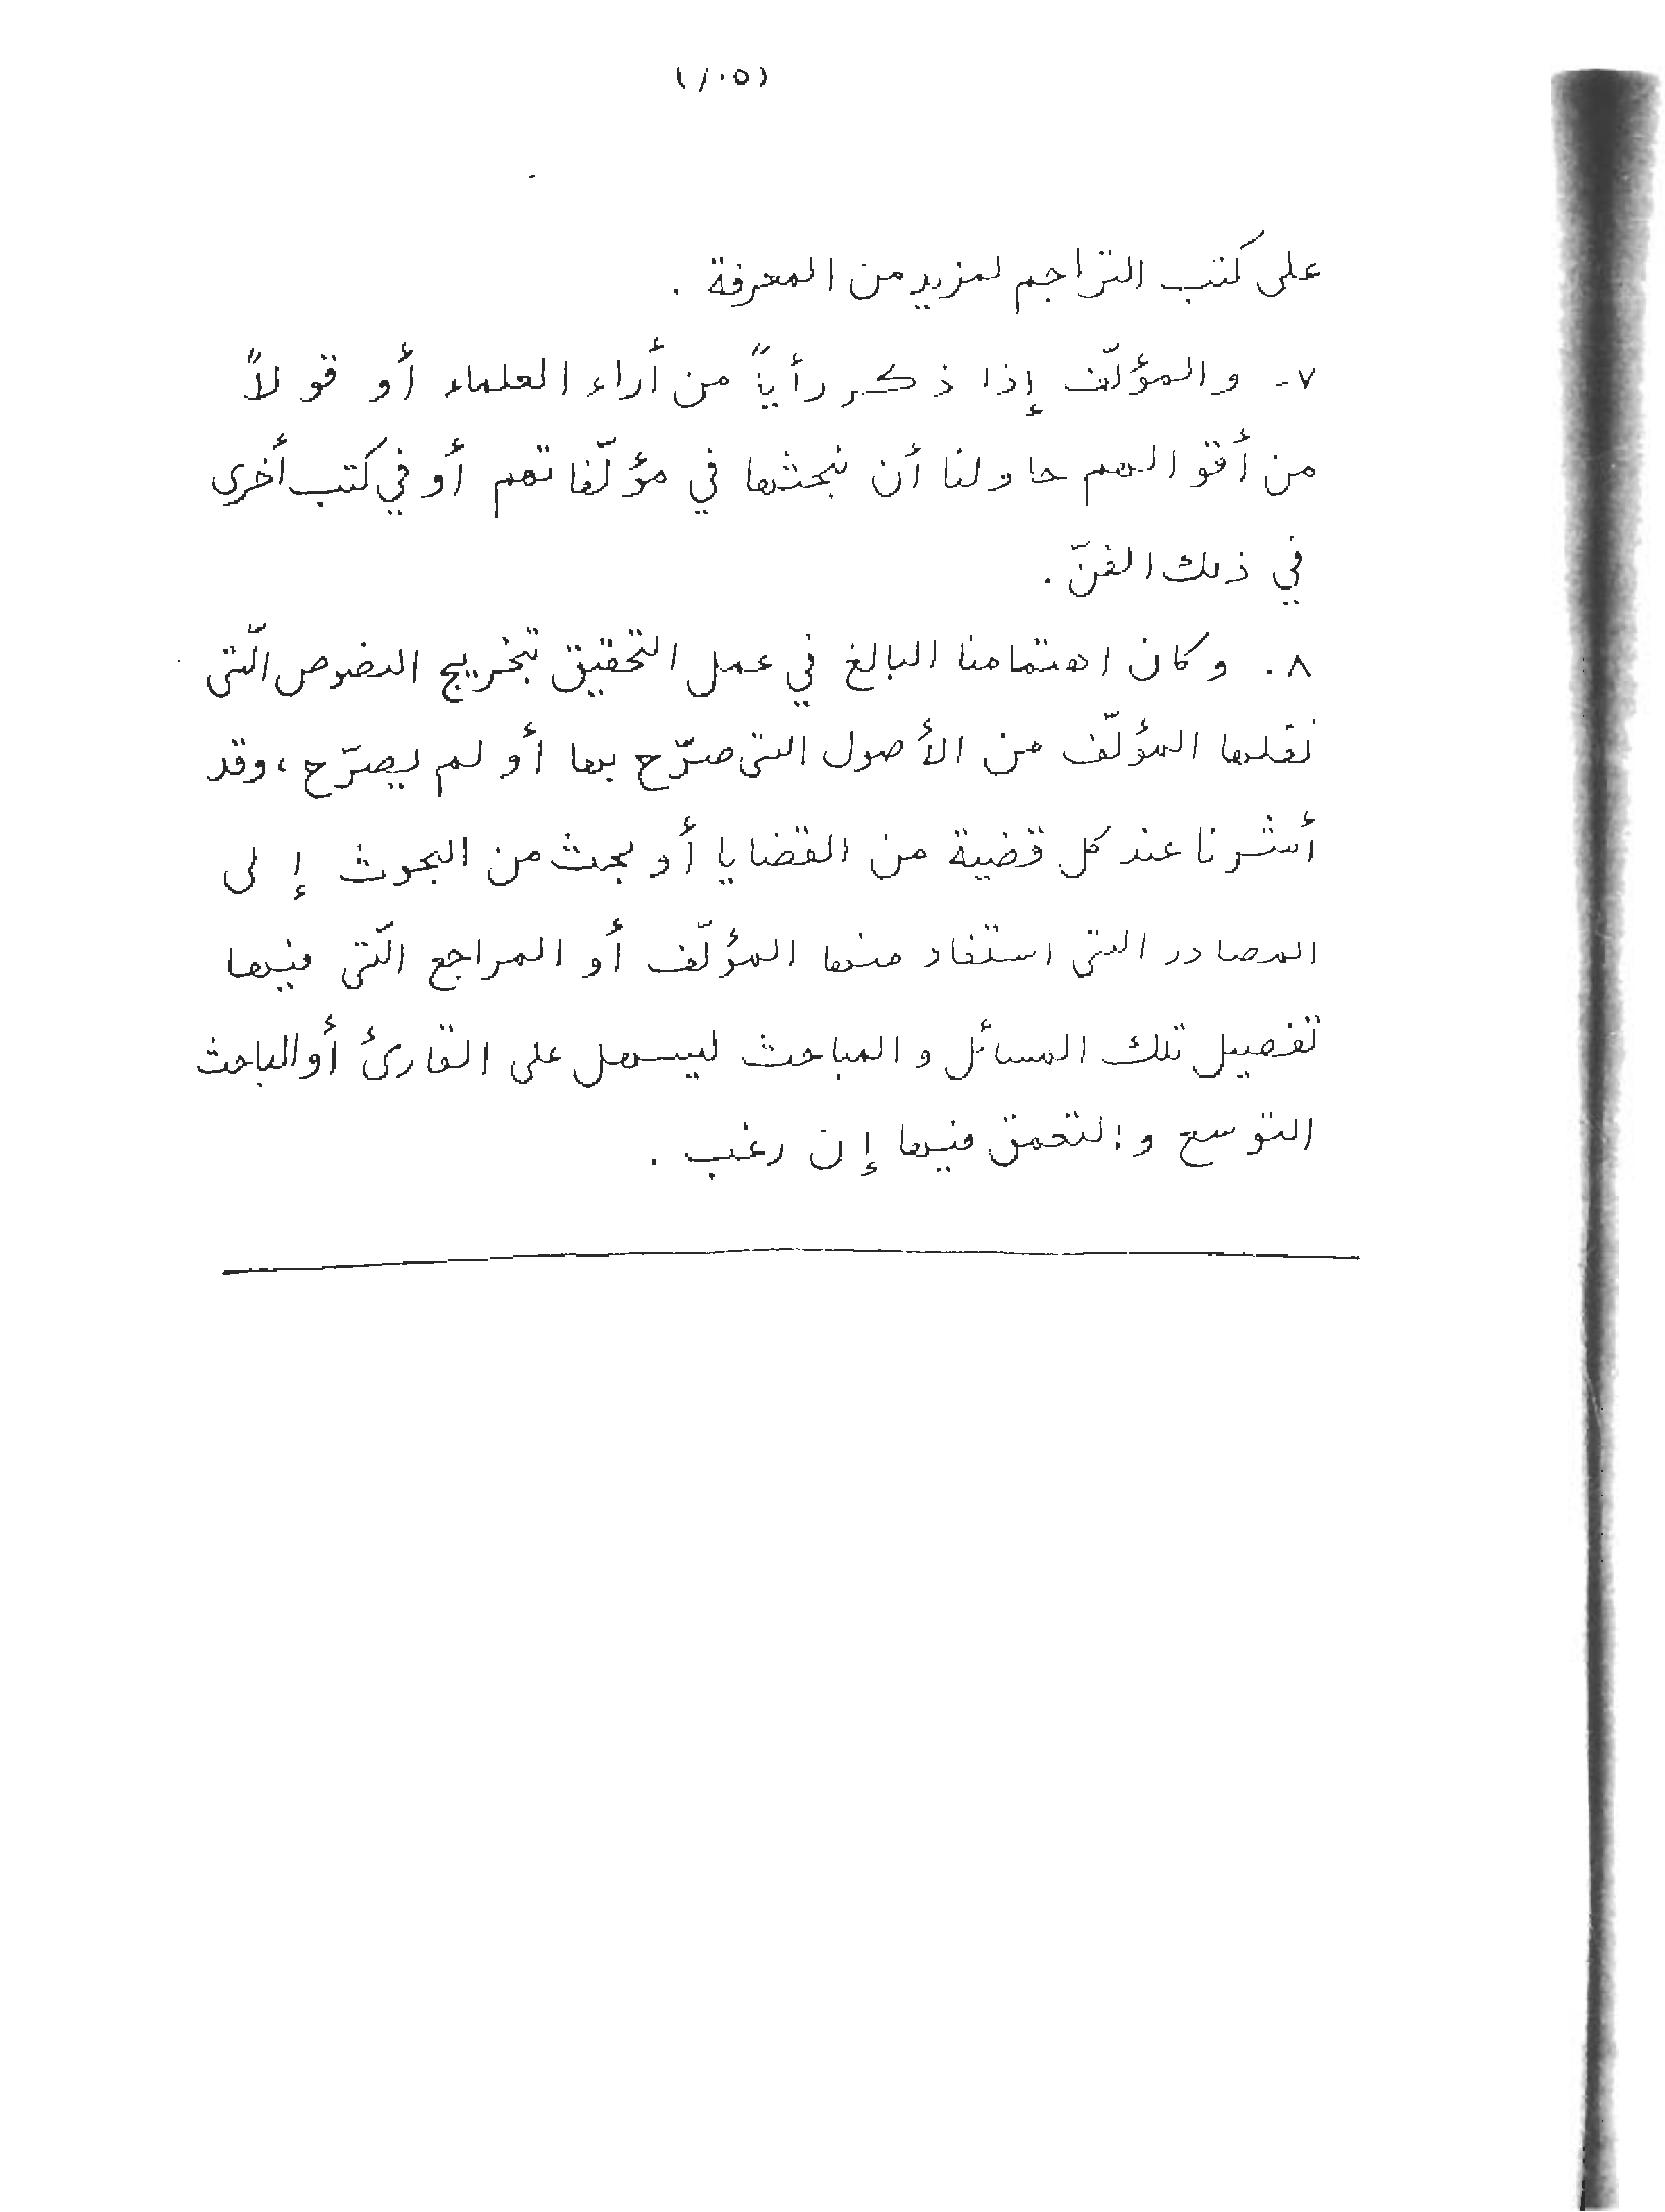 (١٠٥)
على كتب التراجم لمزيد من المعرفة .
٧- والمؤلّف إذا ذكر رأياً من أراء العلماء أو قولاً
من أقوالهم حاولنا أن نبحثها في مؤلّفاتهم أو في كتب أخرى
في ذلك الفنّ .
٨. وكان اهتمامنا البالغ في عمل التحقيق تبخريج النصوص الّتى
نقلها المؤلّف من الأصول التى صرّح بها أو لم يصرّح ، وقد
أشرنا عند كل قضية من القضايا أو بحث من البحوث إلى
المصادر التى استفاد منها المؤلّف أو المراجع الّتى فيها
تفصيل تلك المسائل والمباحث ليسهل على القارئ أو الباحث
التوسع والتعمق فيها إن رغب .